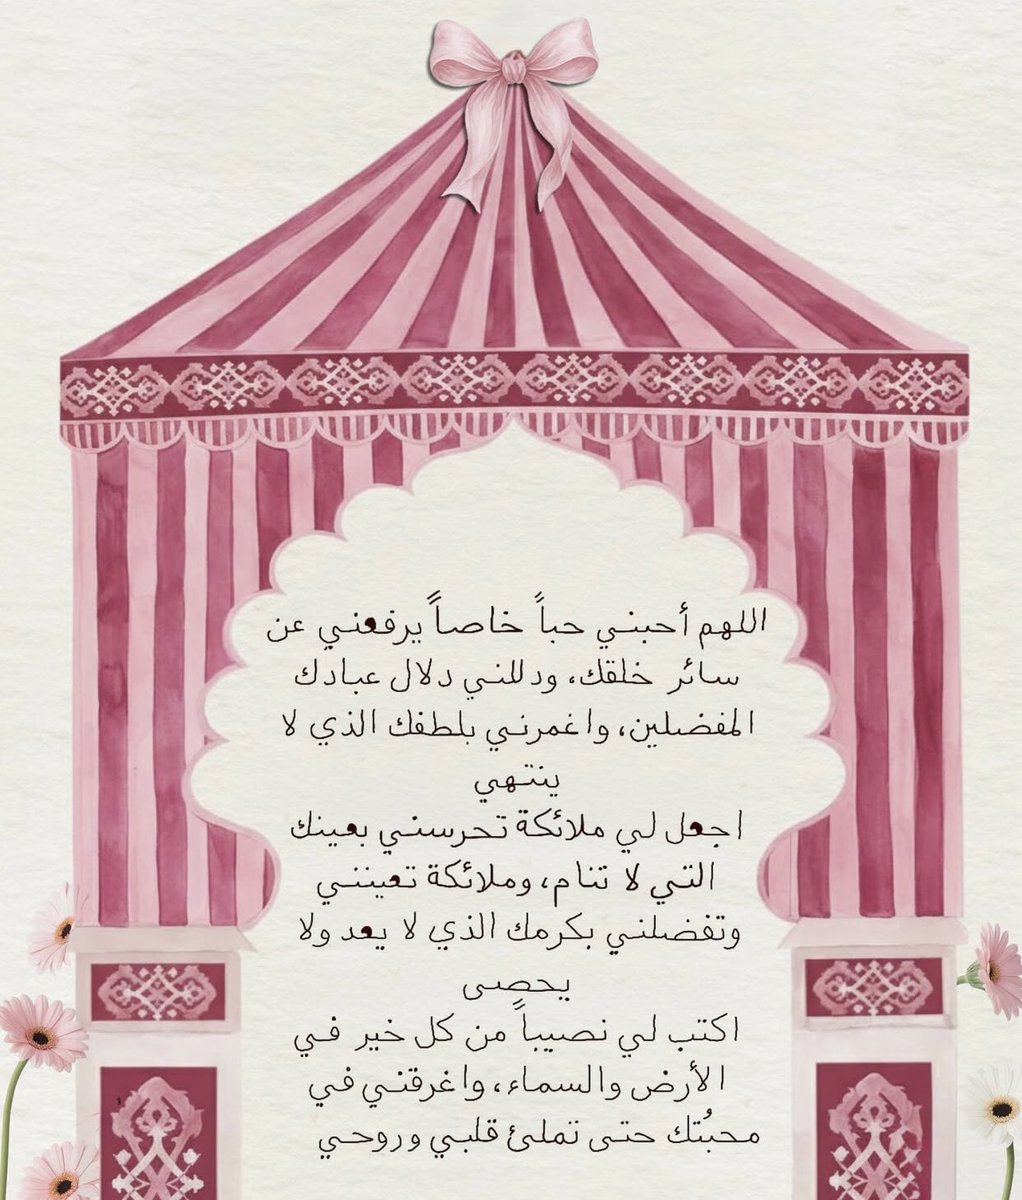 اللهم أحبني حباً خاصاً يرفعني عن
سائر خلقك، ودللني دلال عبادك
المفضلين، واغمرني بلطفك الذي لا
ينتهي
اجعل لي ملائكة تحرسني بعينك
التي لا تنام، وملائكة تعينني
وتفضلني بكرمك الذي لا يعد ولا
يحصى
اكتب لي نصيباً من كل خير في
الأرض والسماء، واغرقني في
محبُتك حتى تملئ قلبي وروحي